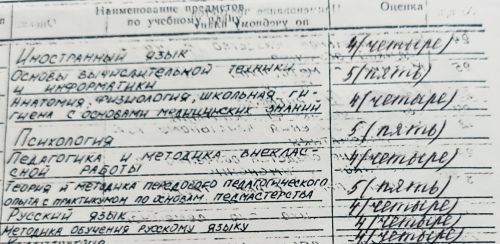 Наименование предметов
по учебному плану
Оценка
Иностранный язык
4(четыре)
Основы вычислительной техники
и информатики
5(пять)
Анатомия, физиология, школьная ги-
гиена с основами медицинских знаний
4(четыре)
Психология
5(пять)
Педагогика и методика внеклас-
сной работы
4(четыре)
Теория и методика передового педагогического
опыта с практикумом по основам педмастерства
5(пять)
Русский язык
4(четыре)
Методика обучения русскому языку
4(четыре)
4(четыре)